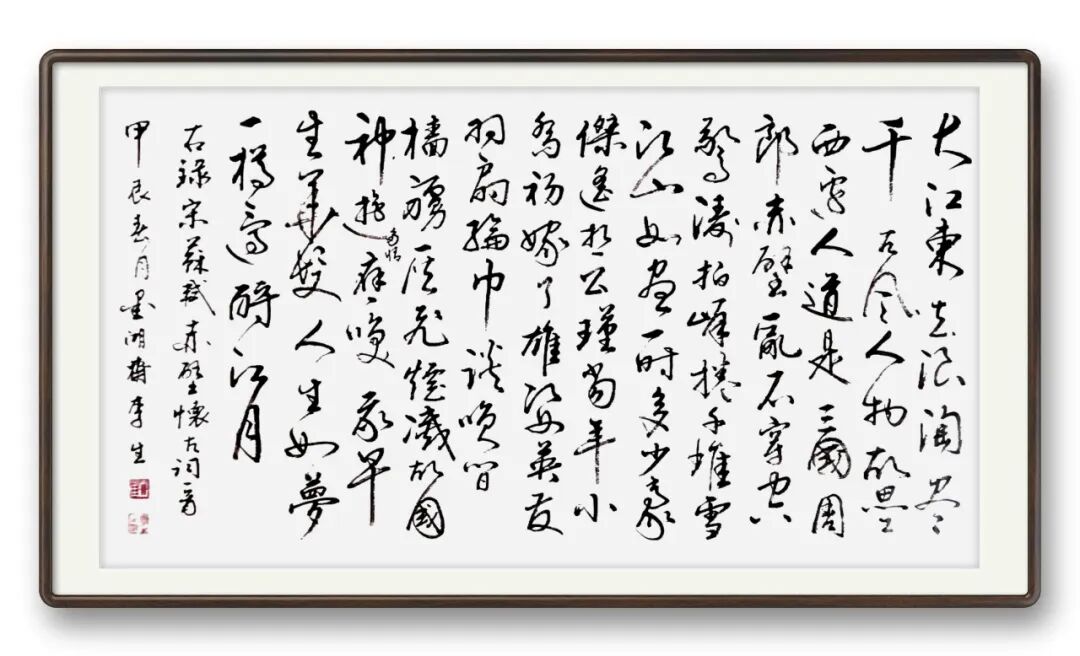 大江東去浪淘盡
千古風人物故壘
西邊人道是三國周
郎赤壁亂石穿空
驚濤拍岸捲千堆雪
江山如畫一時多少豪
傑遙想公瑾當年小
喬初嫁了雄姿英發
羽扇綸巾談笑間
檣艣灰飛煙滅故國
神遊多情應笑我早
生華髮人生如夢
一樽還酹江月
右錄宋蘇軾赤壁懷古詞一首
甲辰春月墨湖李生